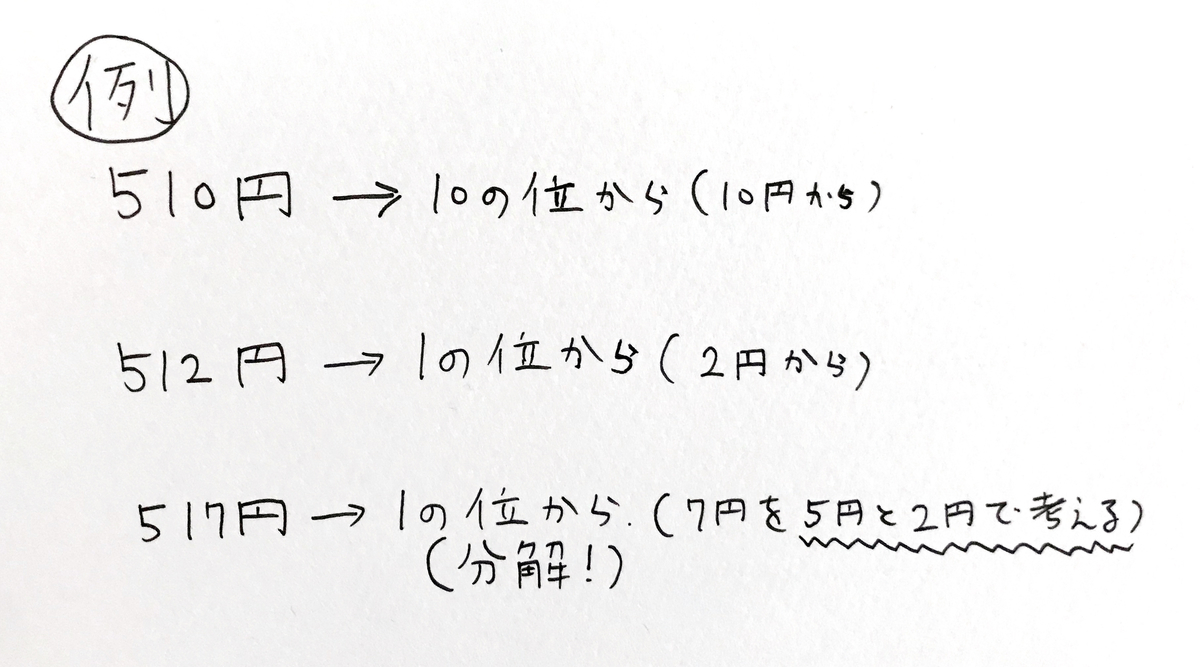 例
510円 → 10の位から(10円から)
512円 → 1の位から(2円から)
517円 → 1の位から.(7円を5円と2円で考える)
(分解!)